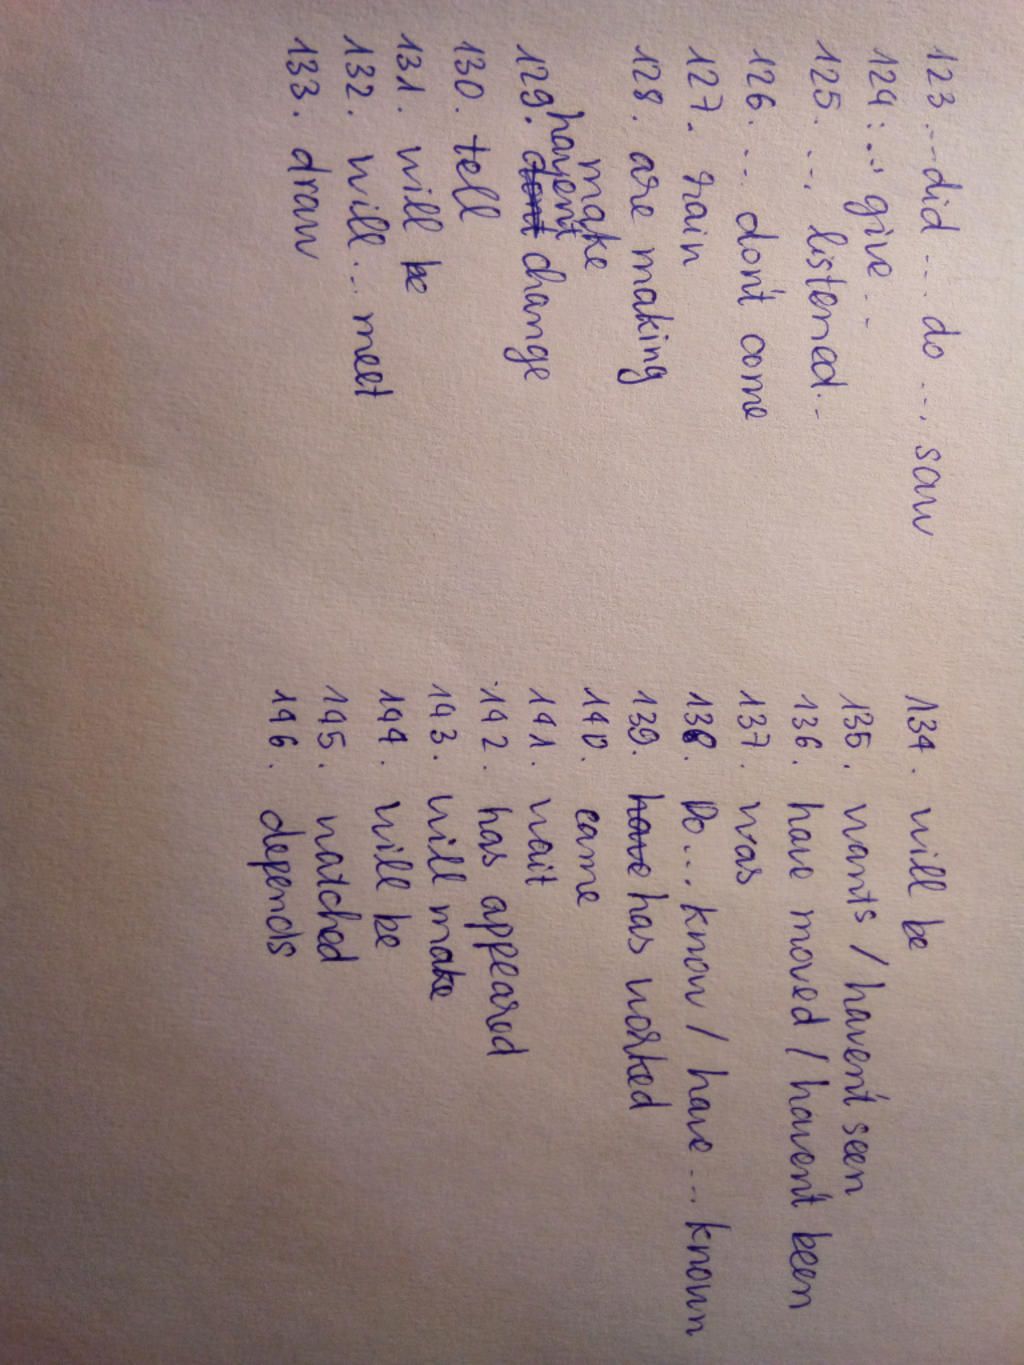 123. ... did ... do ... saw
124. ... give ...
125. ... listened ...
126. ... don't come
127. rain
128. are making
make
havent
129. dont change
130. tell
131. will be
132. will ... meet
133. draw
134. will be
135. wants / haven't seen
136. have moved / haven't been
137. was
138. Do ... know / have ... known
139. have has worked
140. came
141. wait
142. has appeared
143. will make
144. will be
145. watched
146. depends